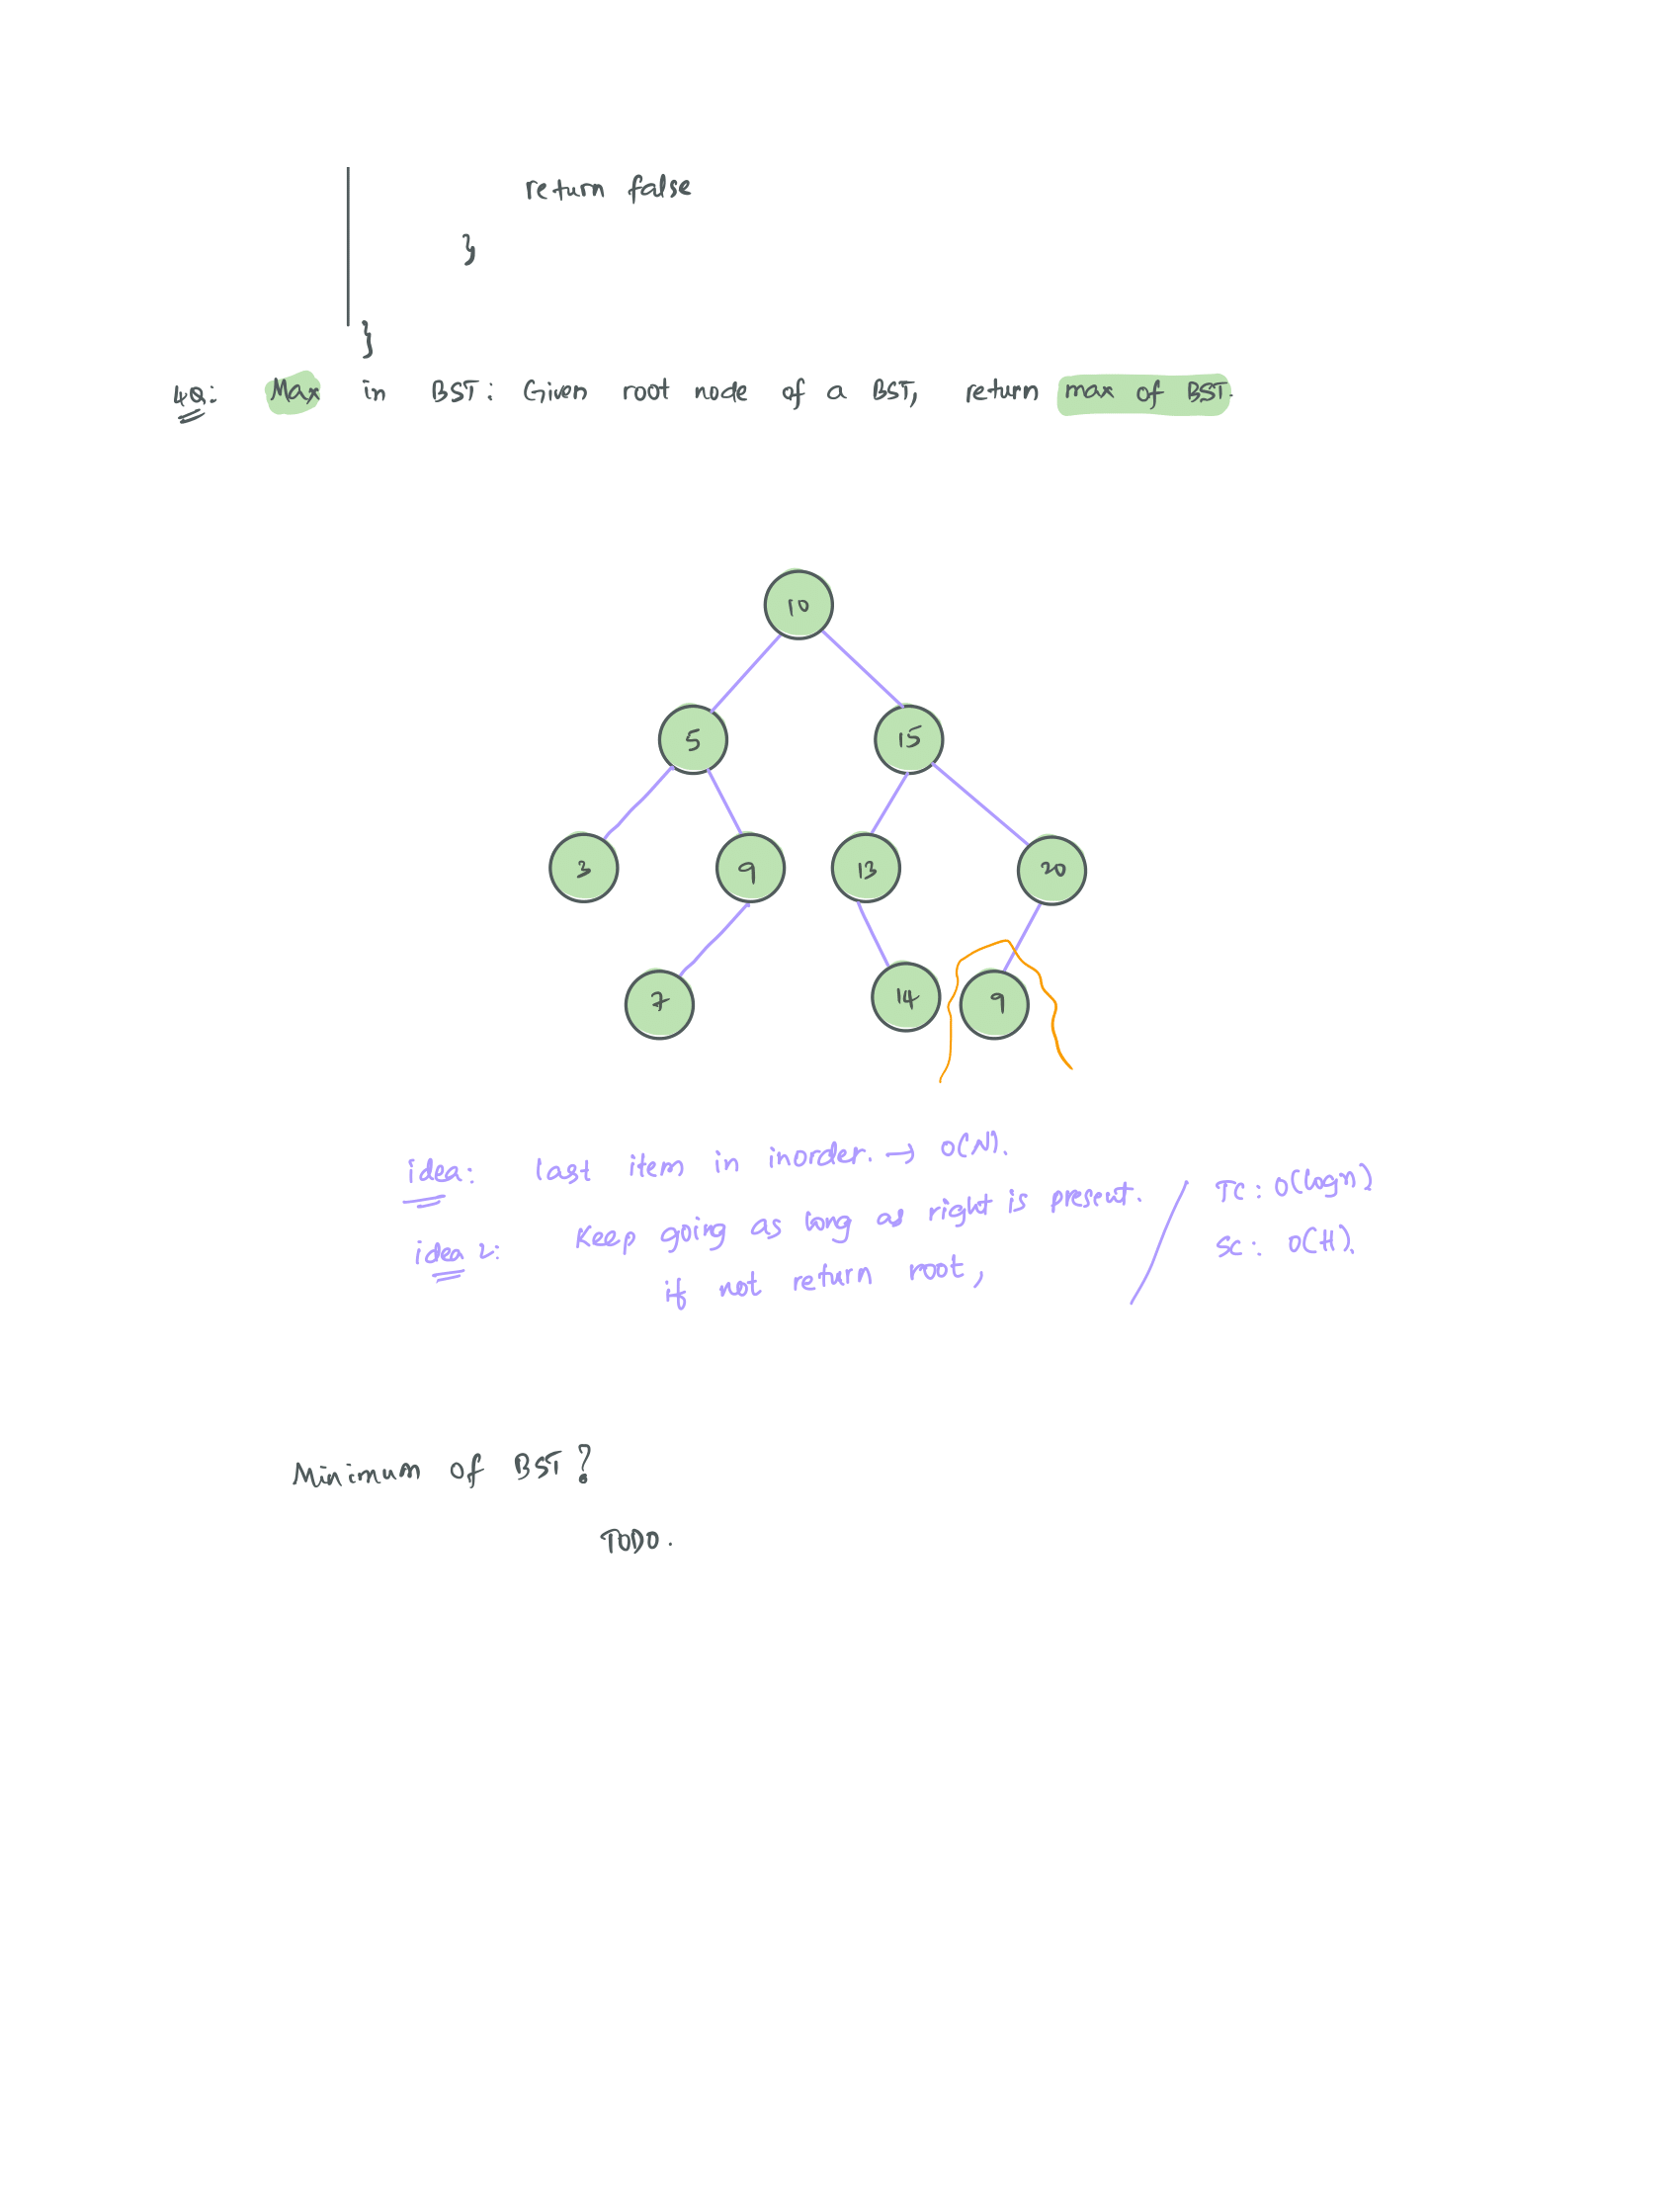 return false
}
}
4Q: Max in BST: Given root node of a BST, return max of BST.
10
5 15
3 9 13 20
7 14 9
idea: last item in inorder. → O(N).
idea 2: Keep going as long as right is present. / TC: O(logn)
if not return root, SC: O(H).
Minimum of BST?
TODO.